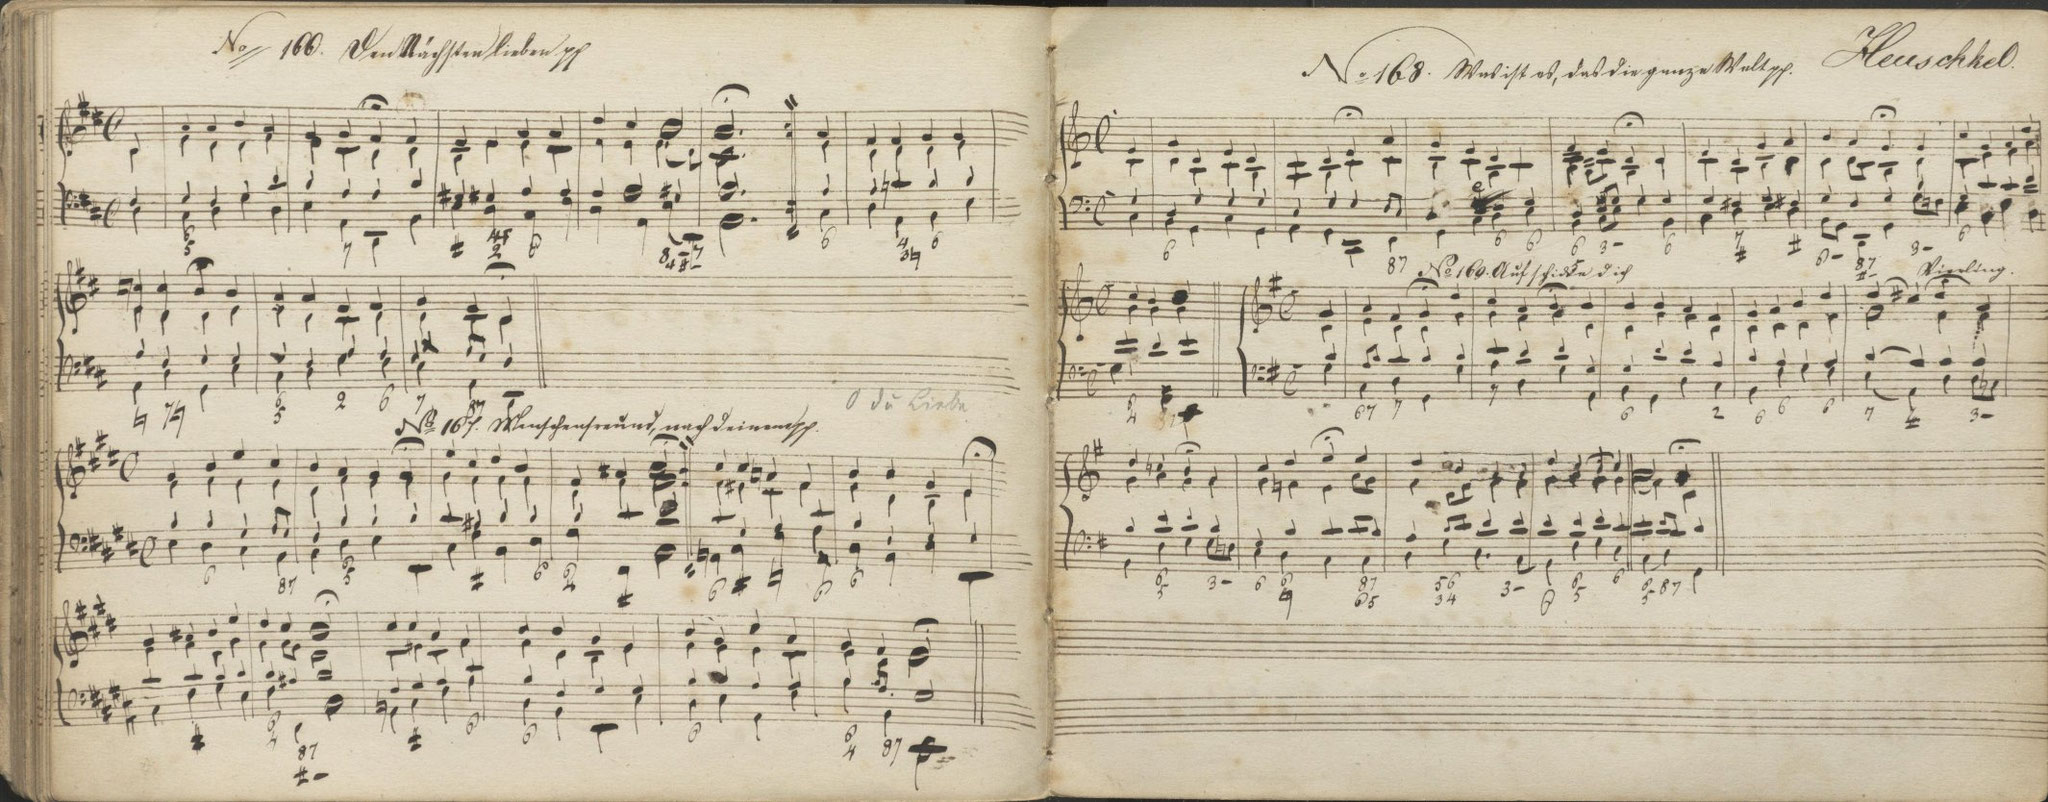 No 166. Den Nächsten lieben pp
No 167. Menschenfreund, nach deinem pp.
O du Liebe
No 168. Was ist es, das die ganze Welt pp. Heuschkel.
No 169. Auf schicke dich Vierling.